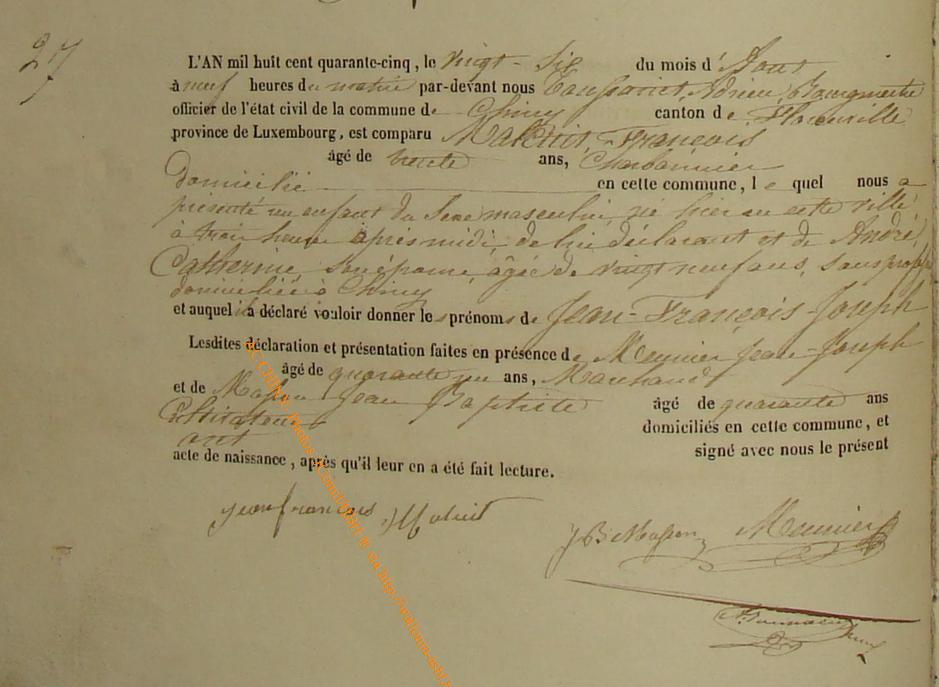 27
L'AN mil huit cent quarante-cinq, le vingt-six du mois d'Aout
à neuf heures du matin par-devant nous Adrien, Bourgmestre
officier de l'état civil de la commune de Chiny canton de Florenville
province de Luxembourg, est comparu Maletit, François
âgé de trente ans, Charbonnier
domicilié en cette commune, le quel nous a
présenté un enfant du Sexe masculin, né hier en cette ville
à trois heures après midi, de lui déclarant et de André,
Catherine, son épouse, âgée de vingt neuf ans, sans prof
domiciliée à Chiny
et auquel il a déclaré vouloir donner les prénoms de Jean-François-Joseph
Lesdites déclaration et présentation faites en présence de Meunier Jean-Joseph
âgé de quarante un ans, Marchand
et de Masson Jean Baptiste âgé de quarante ans
Cultivateur domiciliés en cette commune, et
ont signé avec nous le présent
acte de naissance, après qu'il leur en a été fait lecture.
jean francois
J B Masson Meunier